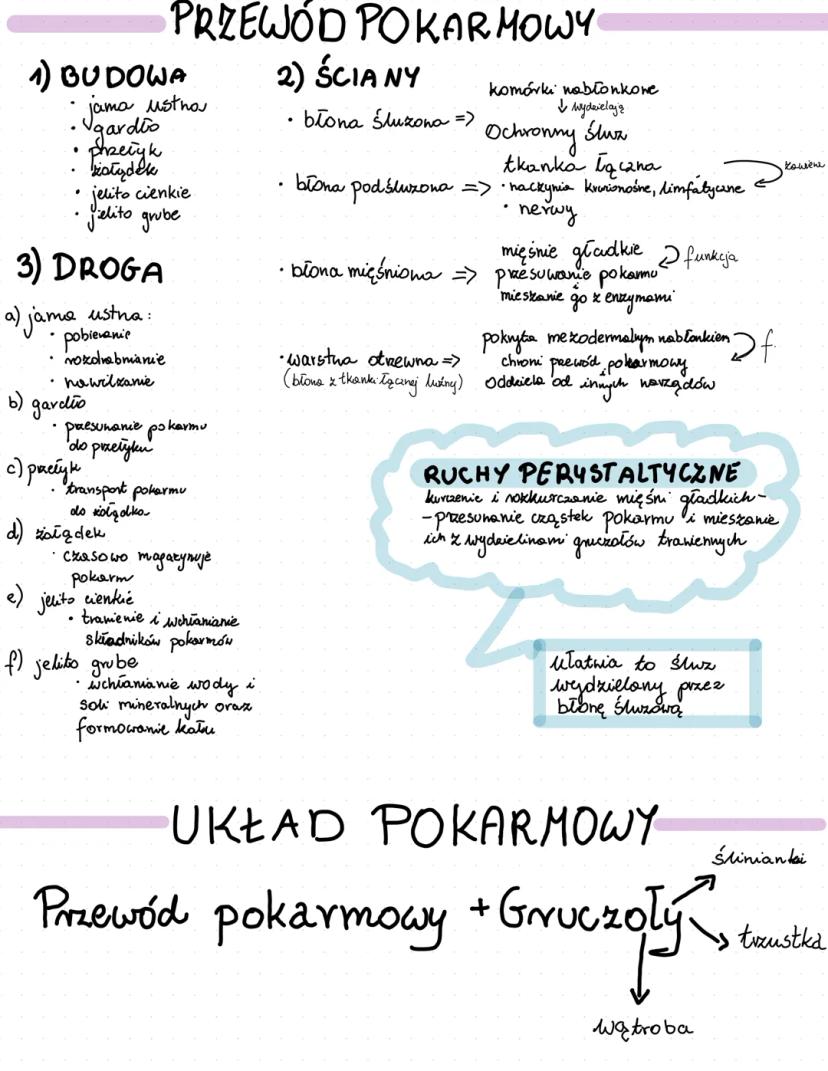 PRZEWÓD POKARMOWY
1) BUDOWA
• jama ustna
• gardło
• przełyk
• żołądek
• jelito cienkie
• jelito grube
2) ŚCIANY
• błona śluzowa =>
komórki nabłonkowe
↓ wydzielają
Ochronny śluz
• błona podśluzowa =>
tkanka łączna
zawiera
• naczynia krwionośne, limfatyczne
• nerwy
• błona mięśniowa =>
mięśnie gładkie
funkcja
przesuwanie pokarmu
mieszanie go z enzymami
• warstwa otrzewna =>
(błona z tkanki łącznej luźnej)
pokryta mezodermalnym nabłonkiem
f.
chroni przewód pokarmowy
oddziela od innych narządów
3) DROGA
a) jama ustna:
• pobieranie
• rozdrabnianie
• nawilżanie
b) gardło
• przesuwanie pokarmu
do przełyku
c) przełyk
• transport pokarmu
do żołądka
d) żołądek
• czasowo magazynuje
pokarm
e) jelito cienkie
• trawienie i wchłanianie
składników pokarmów
f) jelito grube
• wchłanianie wody i
soli mineralnych oraz
formowanie kału
RUCHY PERYSTALTYCZNE
kurczenie i rozkurczanie mięśni gładkich-
-przesuwanie cząstek pokarmu i mieszanie
ich z wydzielinami gruczołów trawiennych
ułatwia to śluz
wydzielony przez
błonę śluzową
UKŁAD POKARMOWY
Przewód pokarmowy + Gruczoły
ślinianki
trzustka
wątroba